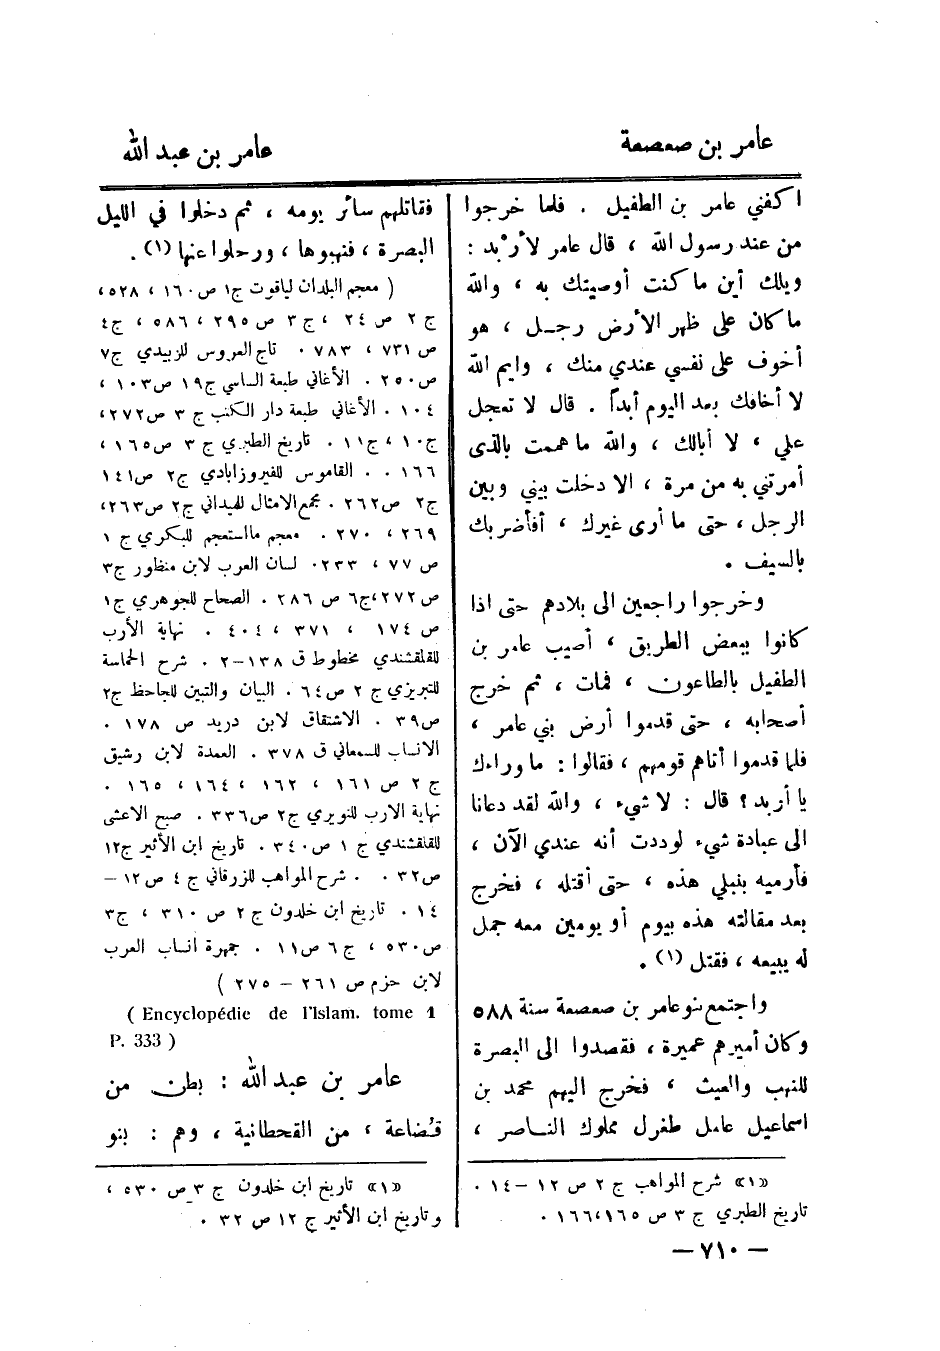 عامر بن صعصعة
عامر بن عبد الله
اكفني عامر بن الطفيل . فلما خرجوا
من عند رسول الله ، قال عامر لأرْبد :
ويلك أين ما كنت أوصيتك به ، والله
ما كان على ظهر الأرض رجل ، هو
أخوف على نفسي عندي منك ، وايم الله
لا أخافك بعد اليوم أبداً . قال لا تعجل
علي ، لا أبالك ، والله ما هممت بالذى
أمرتني به من مرة ، الا دخلت بيني وبين
الرجل ، حتى ما أرى غيرك ، أفأضربك
بالسيف .
وخرجوا راجعين الى بلادهم حتى اذا
كانوا ببعض الطريق ، أصيب عامر بن
الطفيل بالطاعون ، فمات ، ثم خرج
أصحابه ، حتى قدموا أرض بني عامر ،
فلما قدموا أتاهم قومهم ، فقالوا : ما وراءك
يا أربد ؟ قال : لا شيء ، والله لقد دعانا
الى عبادة شيء لوددت أنه عندي الآن ،
فأرميه بنبلي هذه ، حتى أقتله ، فخرج
بعد مقالته هذه بيوم أو يومين معه جمل
له يبيعه ، فقتل (١) .
واجتمع بنو عامر بن صعصعة سنة ٥٨٨
وكان أميرهم عميرة ، فقصدوا الى البصرة
للنهب والعيث ، فخرج اليهم محمد بن
اسماعيل عامل طغرل مملوك الناصر ،
«١» شرح المواهب ج ٢ ص ١٢ –١٤ .
تاريخ الطبري ج ٣ ص ١٦٥،١٦٦ .
فقاتلهم سائر يومه ، ثم دخلوا في الليل
البصرة ، فنهبوها ، ورحلوا عنها (١) .
( معجم البلدان لياقوت ج١ ص١٦٠ ، ٥٢٨،
ج ٢ ص ٢٤ ، ج ٣ ص ٢٩٥ ، ٥٨٦ ، ج٤
ص ٧٣١ ، ٧٨٣ . تاج العروس للزبيدي ج٧
ص٢٥٠ . الأغاني طبعة الساسي ج١٩ ص١٠٣ ،
١٠٤ . الأغاني طبعة دار الكتب ج ٣ ص٢٧٢،
ج١٠ ، ج١١ . تاريخ الطبري ج ٣ ص١٦٥ ،
١٦٦ . . القاموس للفيروزابادي ج٢ ص١٤١
ج٢ ص٢٦٢ . مجمع الامثال للميداني ج٢ ص٢٦٣،
٢٦٩ ، ٢٧٠ . معجم مااستعجم للبكري ج ١
ص ٧٧ ، ٢٣٣. لسان العرب لابن منظور ج٣
ص٢٧٢،ج٦ ص ٢٨٦ . الصحاح للجوهري ج١
ص ١٧٤ ، ٣٧١ ، ٤٠٤ . نهاية الأرب
للقلقشندي مخطوط ق ١٣٨–٢ . شرح الحماسة
للتبريزي ج ٢ ص٦٤ . البيان والتبين للجاحظ ج٢
ص٣٩ . الاشتقاق لابن دريد ص ١٧٨ .
الانساب للسمعاني ق ٣٧٨ . العمدة لابن رشيق
ج ٢ ص ١٦١ ، ١٦٢ ، ١٦٤ ، ١٦٥ .
نهاية الارب للنويري ج٢ ص٣٣٦ . صبح الاعشى
للقلقشندي ج ١ ص٣٤٠ . تاريخ ابن الأثير ج١٢
ص٣٢ . . شرح المواهب للزرقاني ج ٤ ص١٢ –
١٤ . تاريخ ابن خلدون ج ٢ ص ٣١٠ ، ج٣
ص٥٣٠ ، ج ٦ ص١١ . جمهرة انساب العرب
لابن حزم ص ٢٦١ – ٢٧٥ )
( Encyclopédie de l'Islam. tome 1
P. 333 )
عامر بن عبد الله : بطن من
قُضاعة ، من القحطانية ، وهم : بنو
«١» تاريخ ابن خلدون ج ٣ ص ٥٣٠ ،
وتاريخ ابن الأثير ج ١٢ ص ٣٢ .
– ٧١٠ –